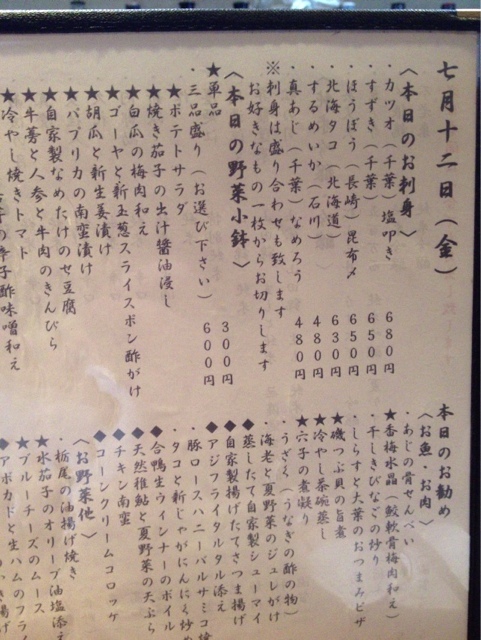 七月十二日（金）
〈本日のお刺身〉
・カツオ（千葉）塩叩き 680円
・すずき（千葉） 650円
・ほうぼう（長崎）昆布〆 650円
・北海タコ（北海道） 630円
・するめいか（石川） 480円
・真あじ（千葉）なめろう 480円
※刺身は盛り合わせも致します
お好きなもの一枚からお切りします
〈本日の野菜小鉢〉
★単品 300円
・三品盛り（お選び下さい） 600円
★ポテトサラダ
★焼き茄子の出汁醤油浸し
★白瓜の梅肉和え
★ゴーヤと新玉葱スライスポン酢がけ
★胡瓜と新生姜漬け
★パプリカの南蛮漬け
★自家製なめたけのせ豆腐
★牛蒡と人参と牛肉のきんぴら
★冷やし焼きトマト
の辛子酢味噌和え
本日のお勧め
〈お魚・お肉〉
・あじの骨せんべい
★香梅水晶（鮫軟骨梅肉和え）
・干しきびなごの炒り
・しらすと大葉のおつまみピザ
★磯つぶ貝の旨煮
★冷やし茶碗蒸し
★穴子の煮凝り
・うざく（うなぎの酢の物）
・海老と夏野菜のジュレがけ
◆蒸したて自家製シューマイ
◆自家製揚げたてさつま揚げ
◆アジフライタルタル添え
・豚ロースハニーバルサミコ焼
・タコと新じゃがにんにく炒め
◆合鴨生ウィンナーのボイル
◆天然稚鮎と夏野菜の天ぷら
◆チキン南蛮
◆コーンクリームコロッケ
〈お野菜他〉
・栃尾の油揚げ焼き
★水茄子のオリーブ油塩添え
★ブルーチーズのムース
◆アボカドと生ハムのフライ
揚げ